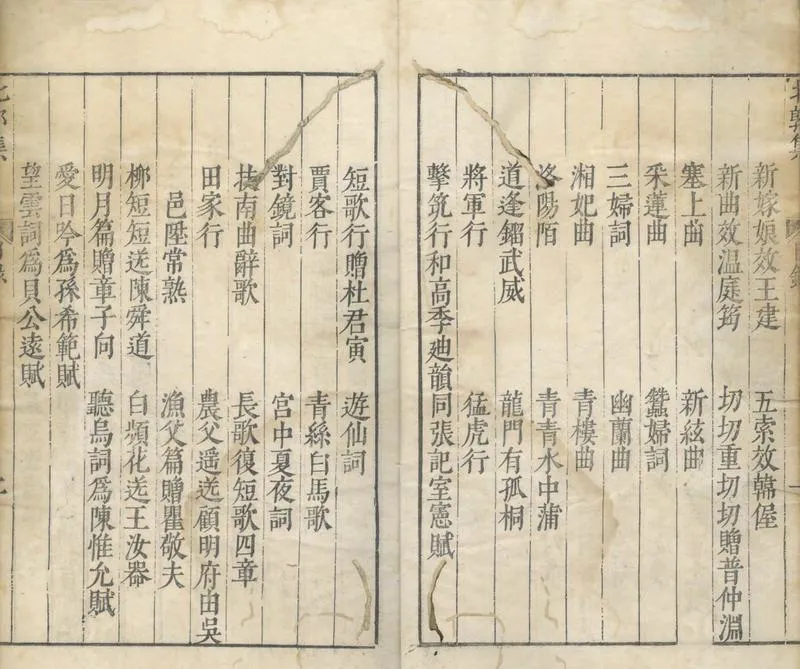 新嫁娘效王建　五索效韓偓
新曲效温庭筠　切切重切切贈普仲淵
塞上曲　新絃曲
采蓮曲　蠶婦詞
三婦詞　幽蘭曲
湘妃曲　青樓曲
洛陽陌　青青水中蒲
道逢鎦武威　龍門有孤桐
將軍行　猛虎行
擊筑行和高季迪韻同張記室憲賦
短歌行贈杜君寅　遊仙詞
賈客行　青絲白馬歌
對鏡詞　宮中夏夜詞
扶南曲辭歌　長歌復短歌四章
田家行　農父謠送顧明府由吳
邑陞常熟　漁父篇贈瞿敬夫
柳短短送陳舜道　白蘋花送王汝器
明月篇贈章子向　聽烏詞爲陳惟允賦
愛日吟爲孫希範賦
望雲詞爲貝公遠賦